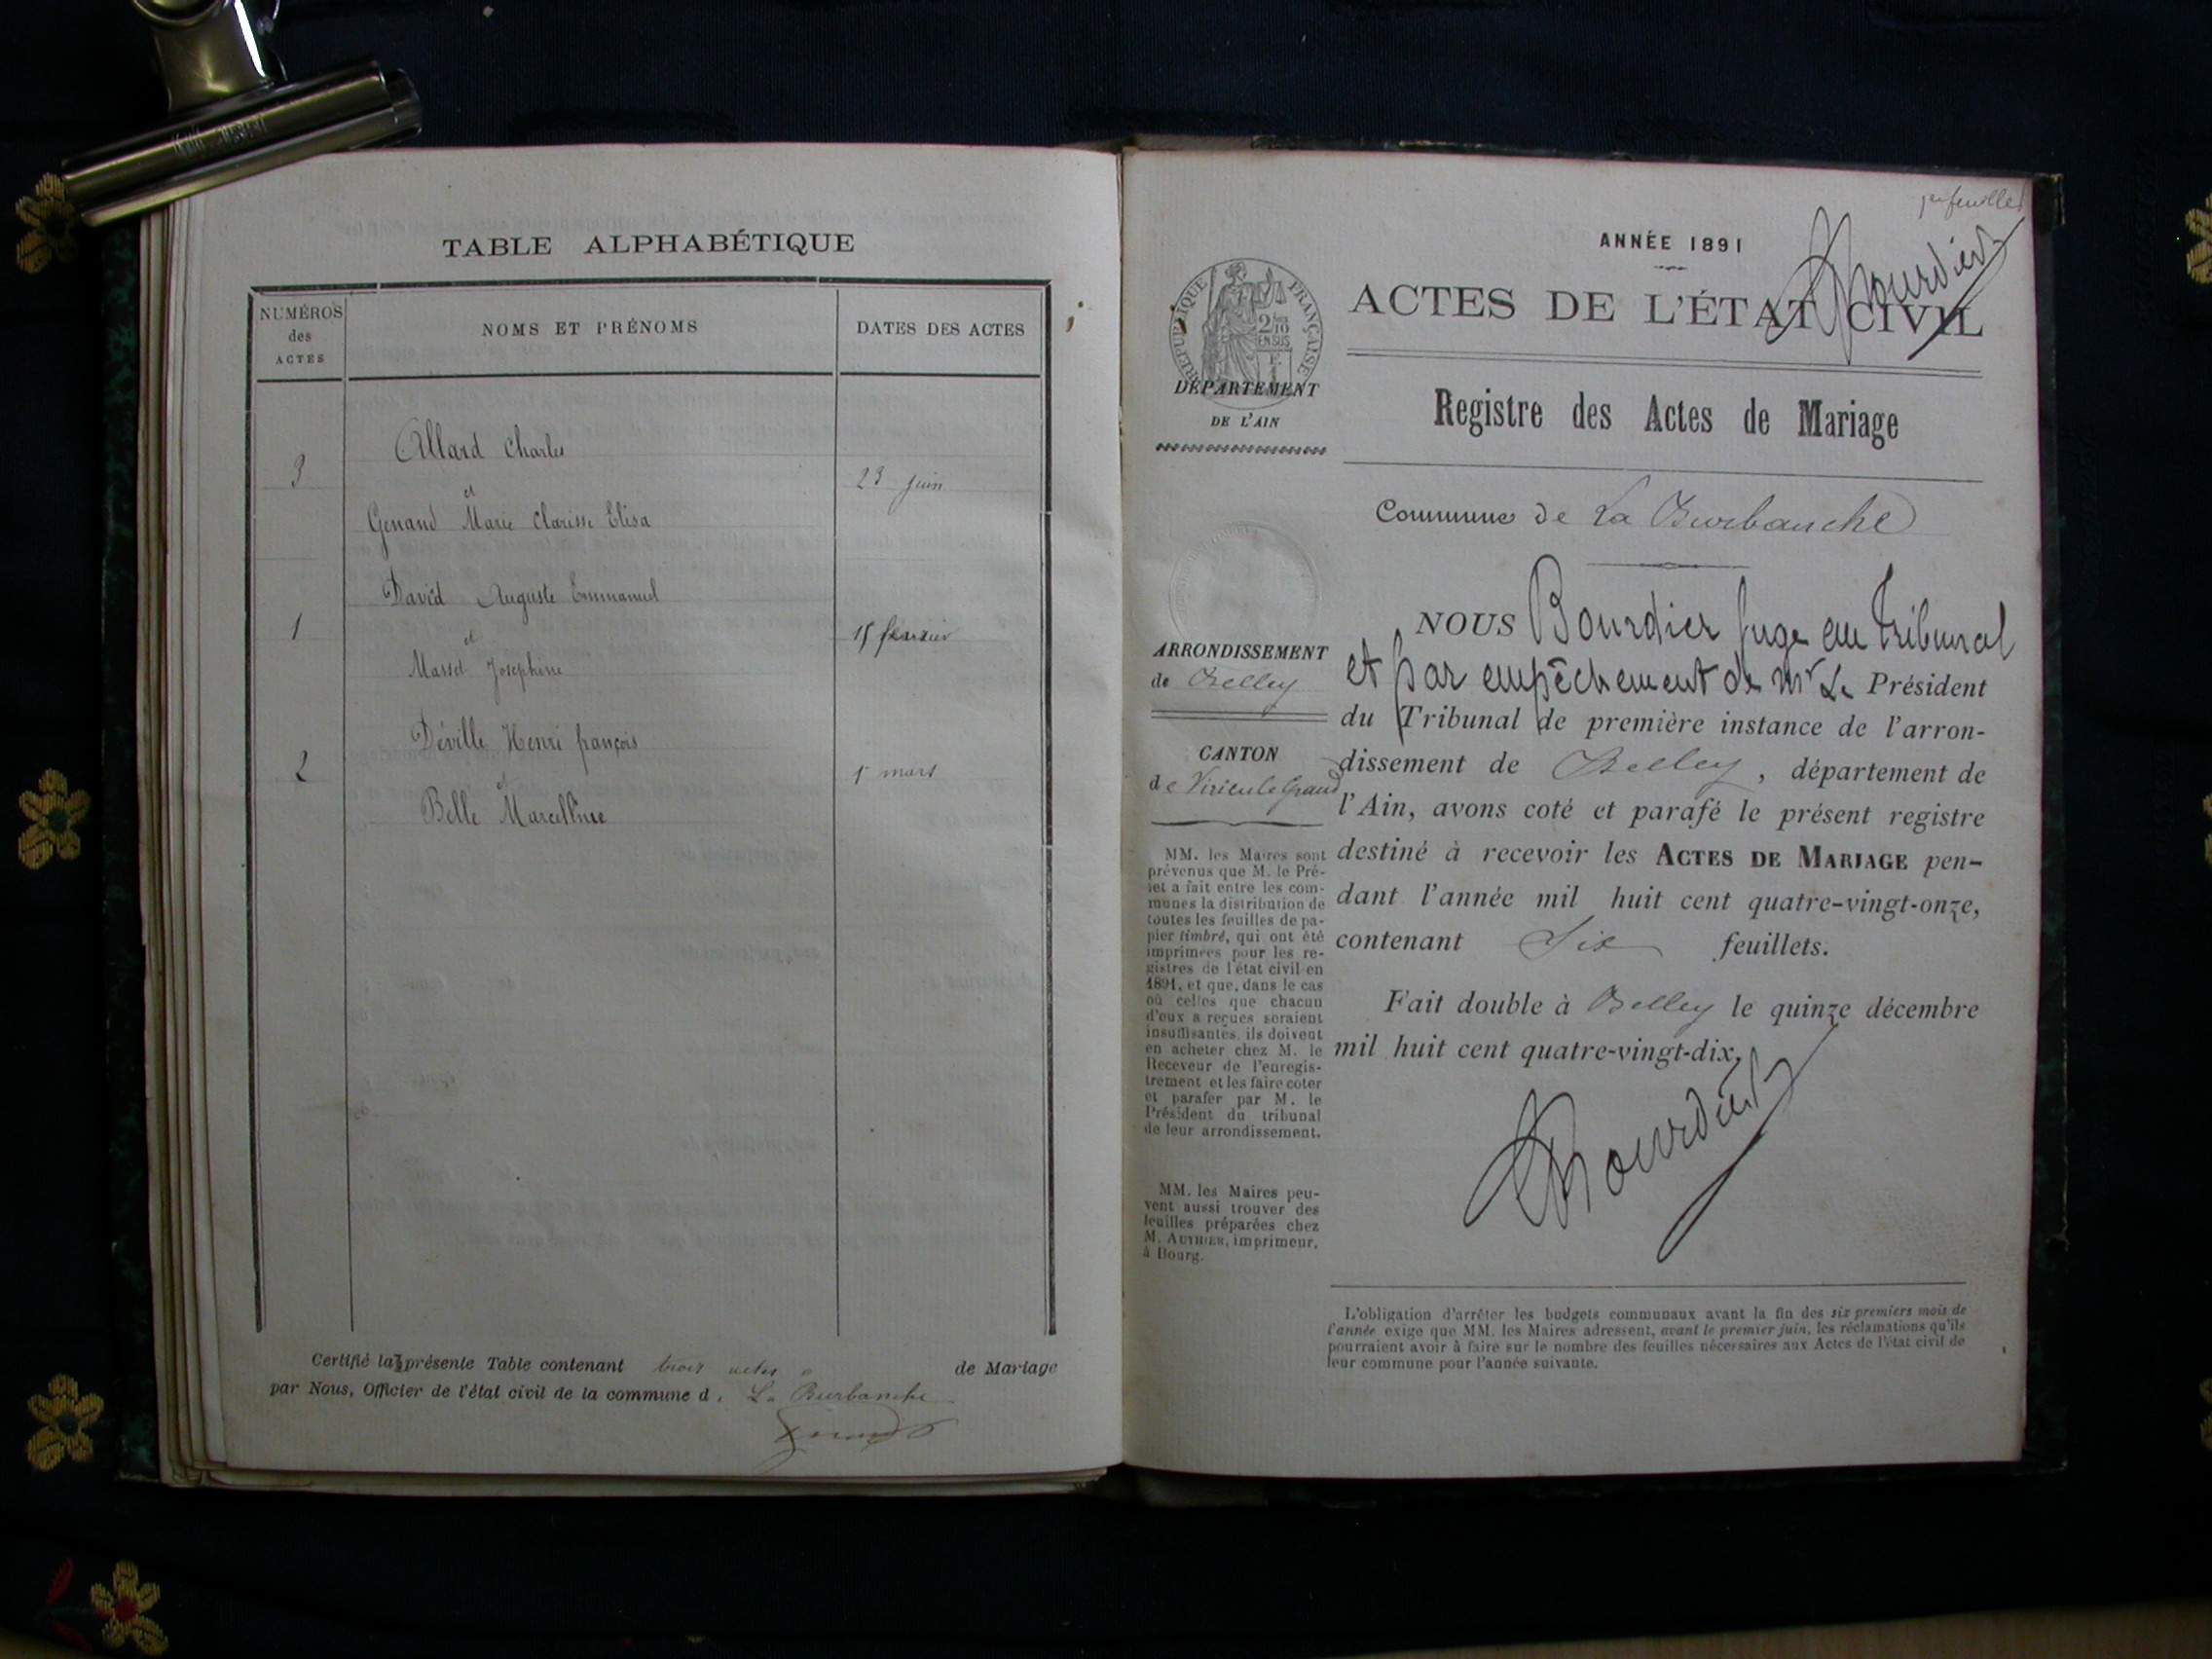 TABLE ALPHABÉTIQUE
NUMÉROS
des
ACTES
NOMS ET PRÉNOMS
DATES DES ACTES
Allard Charles
3
23 juin
et
Genand Marie Clarisse Elisa
David Auguste Emmanuel
1
15 février
et
Josephine
Déville Henri françois
2
mars
et
Belle Marcelline
Certifié la présente Table contenant trois actes de Mariage
par Nous, Officier de l'état civil de la commune d. La Burbanche
1er feuillet
Bourdier
ANNÉE 1891
ACTES DE L'ÉTAT CIVIL
RÉPUBLIQUE FRANÇAISE
2/10
EN SUS
DÉPARTEMENT
DE L'AIN
Registre des Actes de Mariage
Commune de La Burbanche
ARRONDISSEMENT
de Belley
CANTON
de Virieu le Grand
MM. les Maires sont
prévenus que M. le Pré-
fet a fait entre les com-
munes la distribution de
toutes les feuilles de pa-
pier timbré, qui ont été
imprimées pour les re-
gistres de l'état civil en
1891, et que, dans le cas
où celles que chacun
d'eux a reçues seraient
insuffisantes, ils doivent
en acheter chez M. le
Receveur de l'enregis-
trement et les faire coter
et parafer par M. le
Président du tribunal
de leur arrondissement.
MM. les Maires peu-
vent aussi trouver des
feuilles préparées chez
M. AUTHIER, imprimeur,
à Bourg.
NOUS Bourdier Juge au Tribunal
et par empêchement de Mr Le Président
du Tribunal de première instance de l'arron-
dissement de Belley, département de
l'Ain, avons coté et parafé le présent registre
destiné à recevoir les ACTES DE MARIAGE pen-
dant l'année mil huit cent quatre-vingt-onze,
contenant Six feuillets.
Fait double à Belley le quinze décembre
mil huit cent quatre-vingt-dix.
Bourdier
L'obligation d'arrêter les budgets communaux avant la fin des six premiers mois de
l'année exige que MM. les Maires adressent, avant le premier juin, les réclamations qu'ils
pourraient avoir à faire sur le nombre des feuilles nécessaires aux Actes de l'état civil de
leur commune pour l'année suivante.